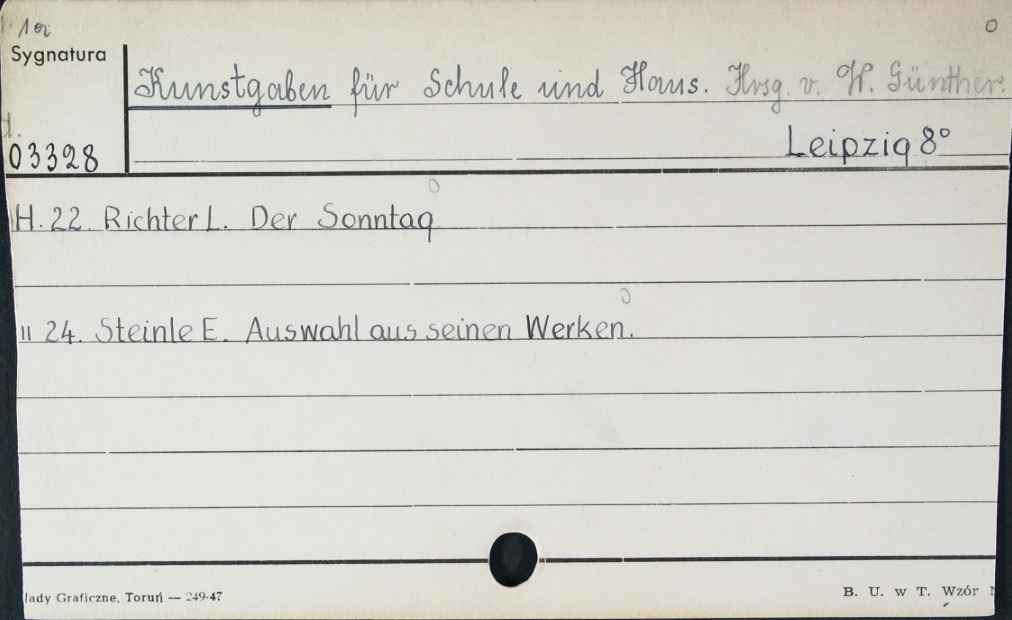 Sygnatura
Kunstgaben für Schule und Haus. Hrsg. v. W. Günther.
03328
Leipzig 8°
H. 22. Richter L. Der Sonntag
" 24. Steinle E. Auswahl aus seinen Werken.
łady Graficzne, Toruń — 249-47
B. U. w T. Wzór